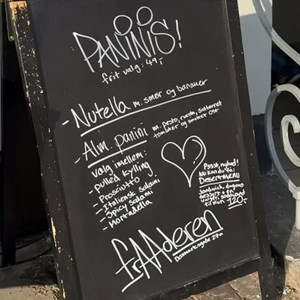 PANINIS!
frit valg : 49,-
- Nutella m. smør og bananer
- Alm. panini m. pesto, rucola, soltørret
tomater og smeltet ost
valg imellem:
- pulled kylling
- Prosciutto
- Italiensk salami
- Spicy salami
- Mortadella
Psssst, nyhed!
Nu kan du få:
Dessertmenu
Sandwich, dagens
dessert + kaffe
til kun 120,-
frAAderen